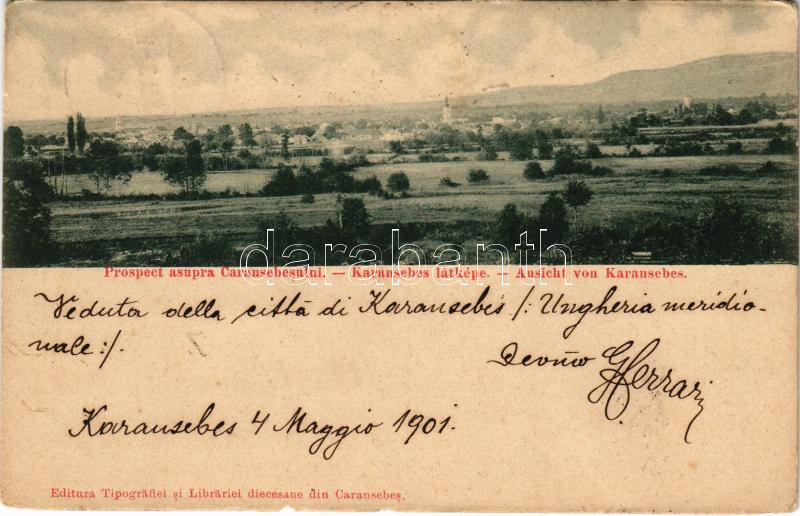 darabanth
Prospect asupra Caransebesului. — Karánsebes látképe. — Ausicht von Karansebes.
Veduta della città di Karansebes /: Ungheria meridio-
nale :/.
Devmo GFerrari
Karansebes 4 Maggio 1901.
Editura Tipografiei și Librăriei diecesane din Caransebeș.